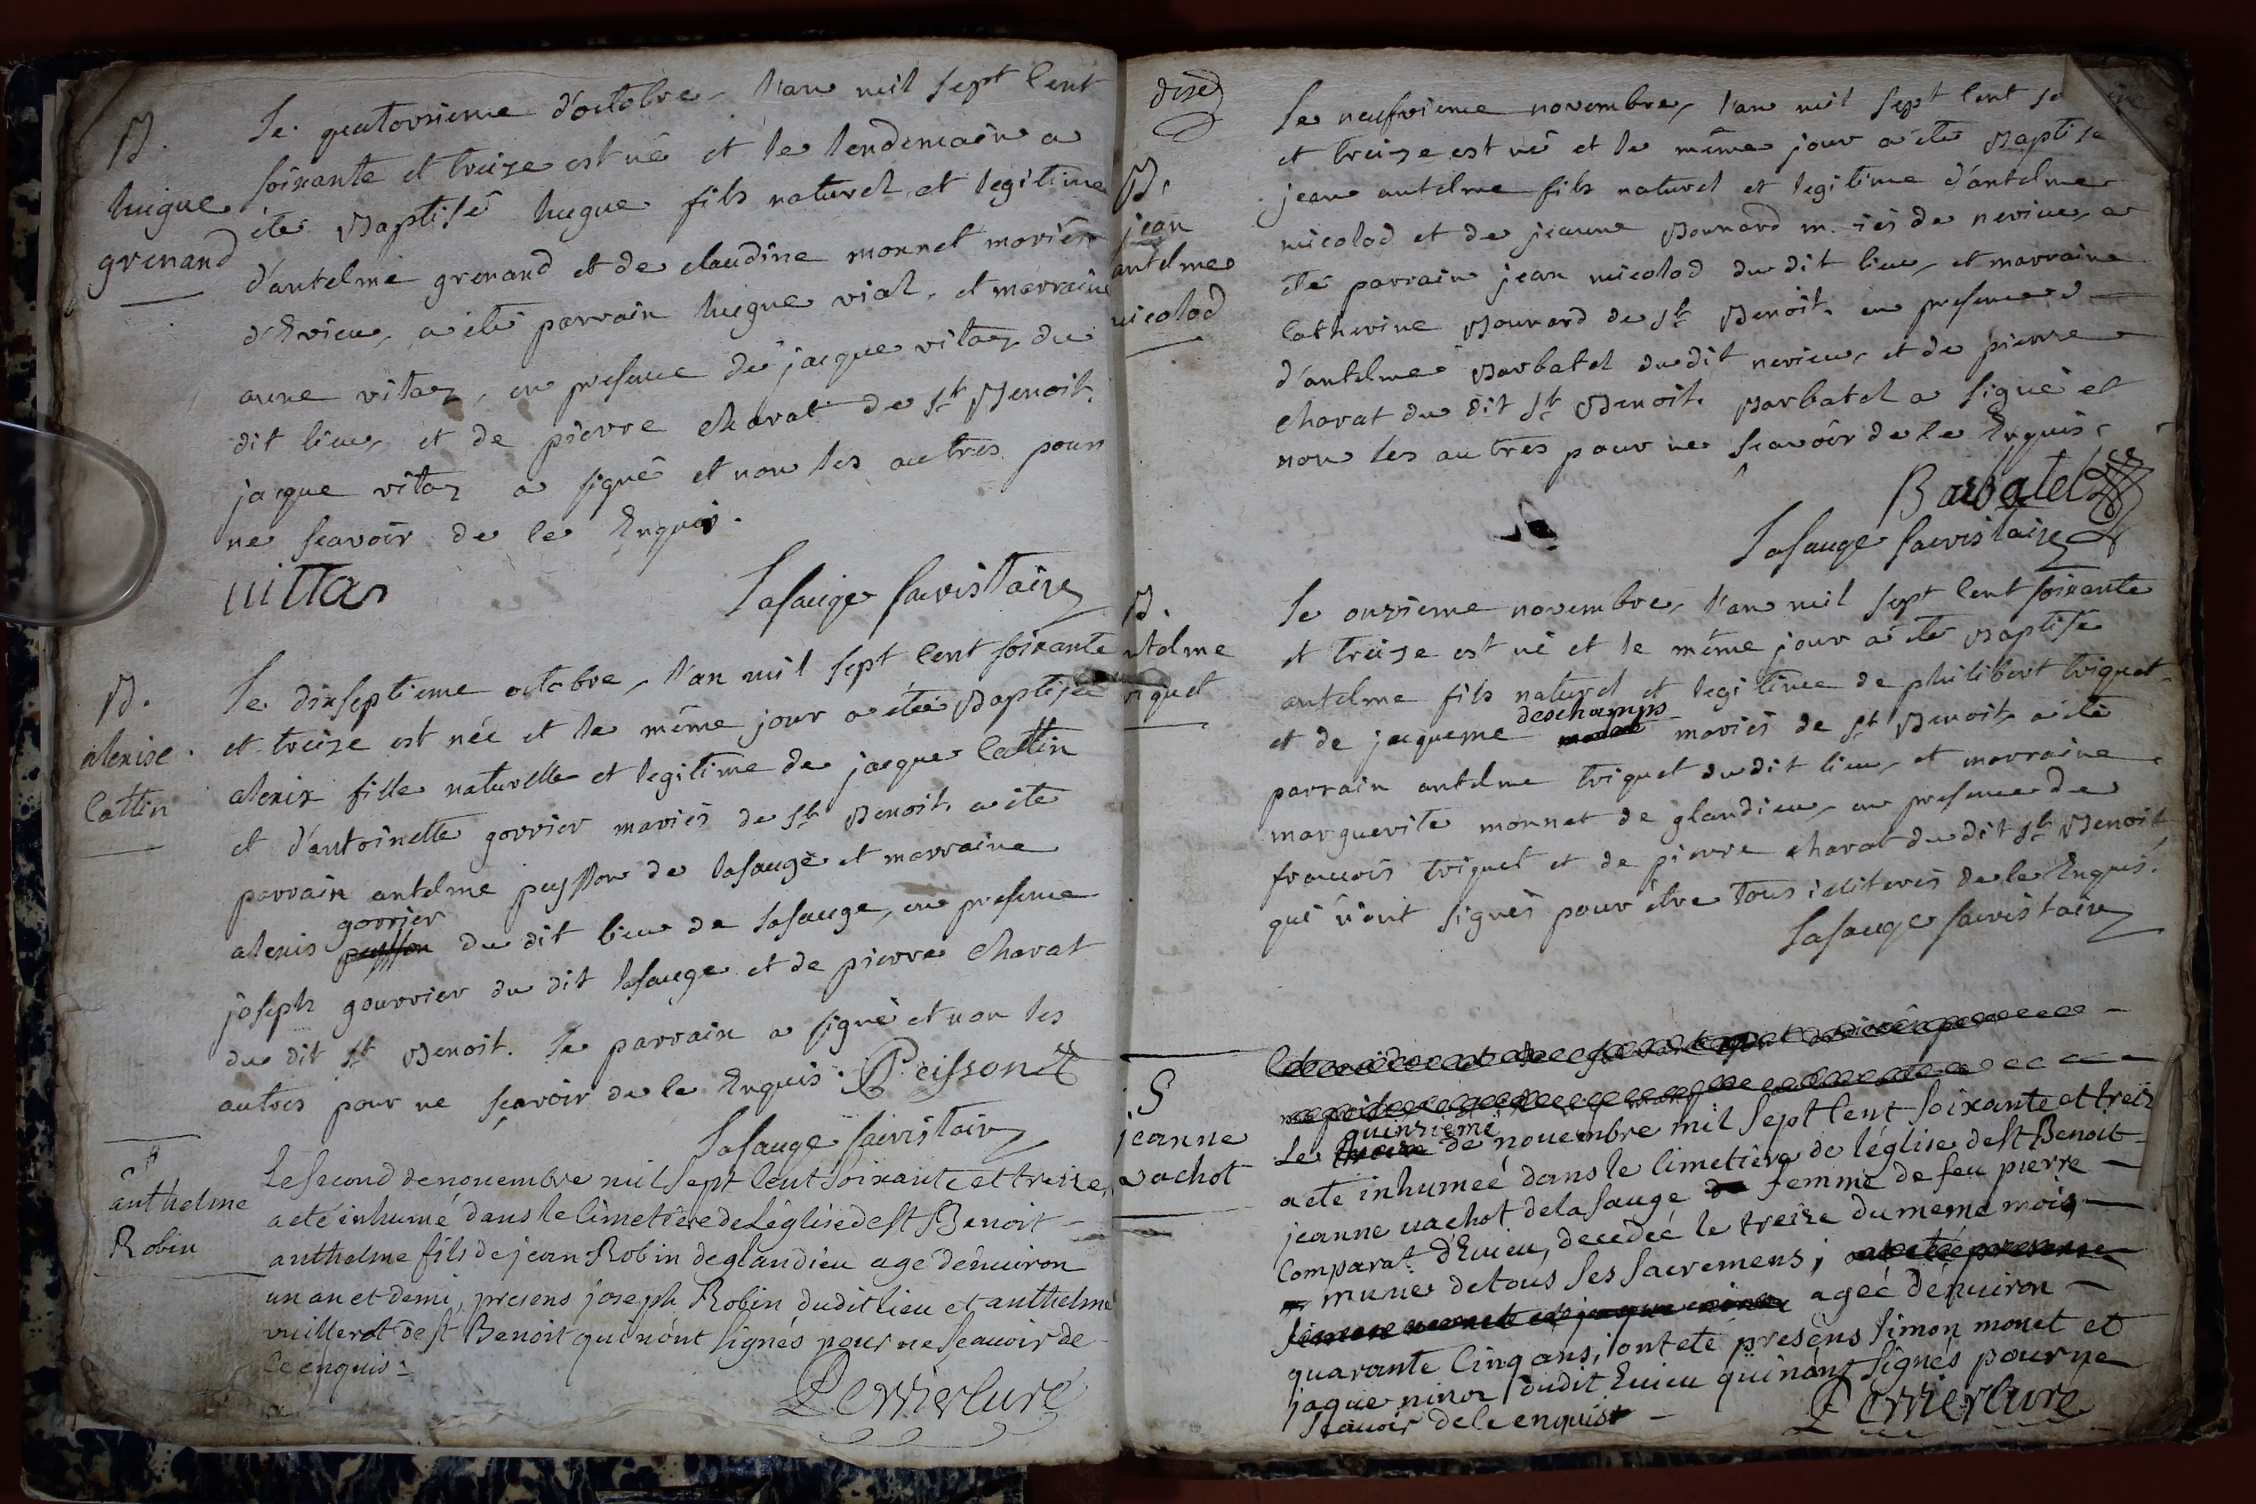 B.
hugue
grenand
Le quatorsieme d'octobre l'an mil sept cent
soixante et treize est né et le lendemain a
été Baptisé hugue fils naturel et legitime
d'antelme grenand et de claudine monnet mariés
d'Evieu, a été parrain hugue vial, et marraine
anne vitaz, en presence de jacque vitaz du
dit lieu, et de pierre charat de st Benoit.
jacque vitaz a signé et non les autres pour
ne scavoir de ce Enquis.
uittaz
Lasauge sacristain
B.
alexise
Cattin
Le dixseptieme octobre, l'an mil sept cent soixante
et treize est née et le même jour a étée Baptisée
alexix fille naturelle et legitime de jacque Cattin
et d'antoinette gorrier mariés de st Benoit. a été
parrain antelme peysson de lasauge et marraine
gorrier
alexis peysson du dit lieu de lasauge, en presence
joseph gourrier du dit lasauge et de pierre charat
du dit st Benoit. Le parrain a signé et non les
autres pour ne sçavoir de le Enquis. Peisson
Lasauge sacristain
S
anthelme
Robin
Le second de nouembre mil sept cent soixante et treize,
a eté inhumé dans le cimetiere de L'église de st Benoit
anthelme fils de jean Robin de glandieu agé dénuiron
un an et demi, presens joseph Robin du dit lieu et anthelme
vuillerot de st Benoit qui nónt signés pour ne sçauoir de
ce enquis
Perrier curé
B.
jean
antelme
nicolod
Le neufvieme novembre, l'an mil sept cent
et treize est né et le même jour a été Baptisé
jean antelme fils naturel et legitime d'antelme
nicolod et de jeanne Bonnard de nevieu, a
été parrain jean nicolod du dit lieu, et marraine
Catherine Bonnard de st Benoit. en presence
d'antelme Barbatel du dit nevieu, et de pierre
charat du dit st Benoit. Barbatel a signé et
non les autres pour ne scavoir de le Enquis.
Barbatel
Lasauge sacristain
B.
ntelme
riquet
Le onzieme novembre, l'an mil sept cent soixante
et treize est né et le même jour a été Baptisé
antelme fils naturel et legitime de philibert triquet
deschamps
et de jacqueme mariés de st Benoit. a été
parrain antelme triquet du dit lieu, et marraine
marguerite monnet de glandieu, en presence de
francois triquet et de pierre charat du dit st Benoit,
qui n'ont signés pour être tous iliterés de le Enquis.
Lasauge sacristain
S
jeanne
vachot
quinzieme
Le treize de nouembre mil sept cent soixante et treiz
a eté inhumeé dans le cimetiére de léglise de st Benoit
jeanne uachot de la sauge femme de feu pierre
Comparat d'Euieu, decedeé le treize du meme mois
munie de tous ses sacremens; agéé dénuiron
quarante cinq ans; ont eté presens simon monet et
jaque ninoz dudit Euieu qui nónt signés pour ne
scauoir de le enquis
Perrier curé